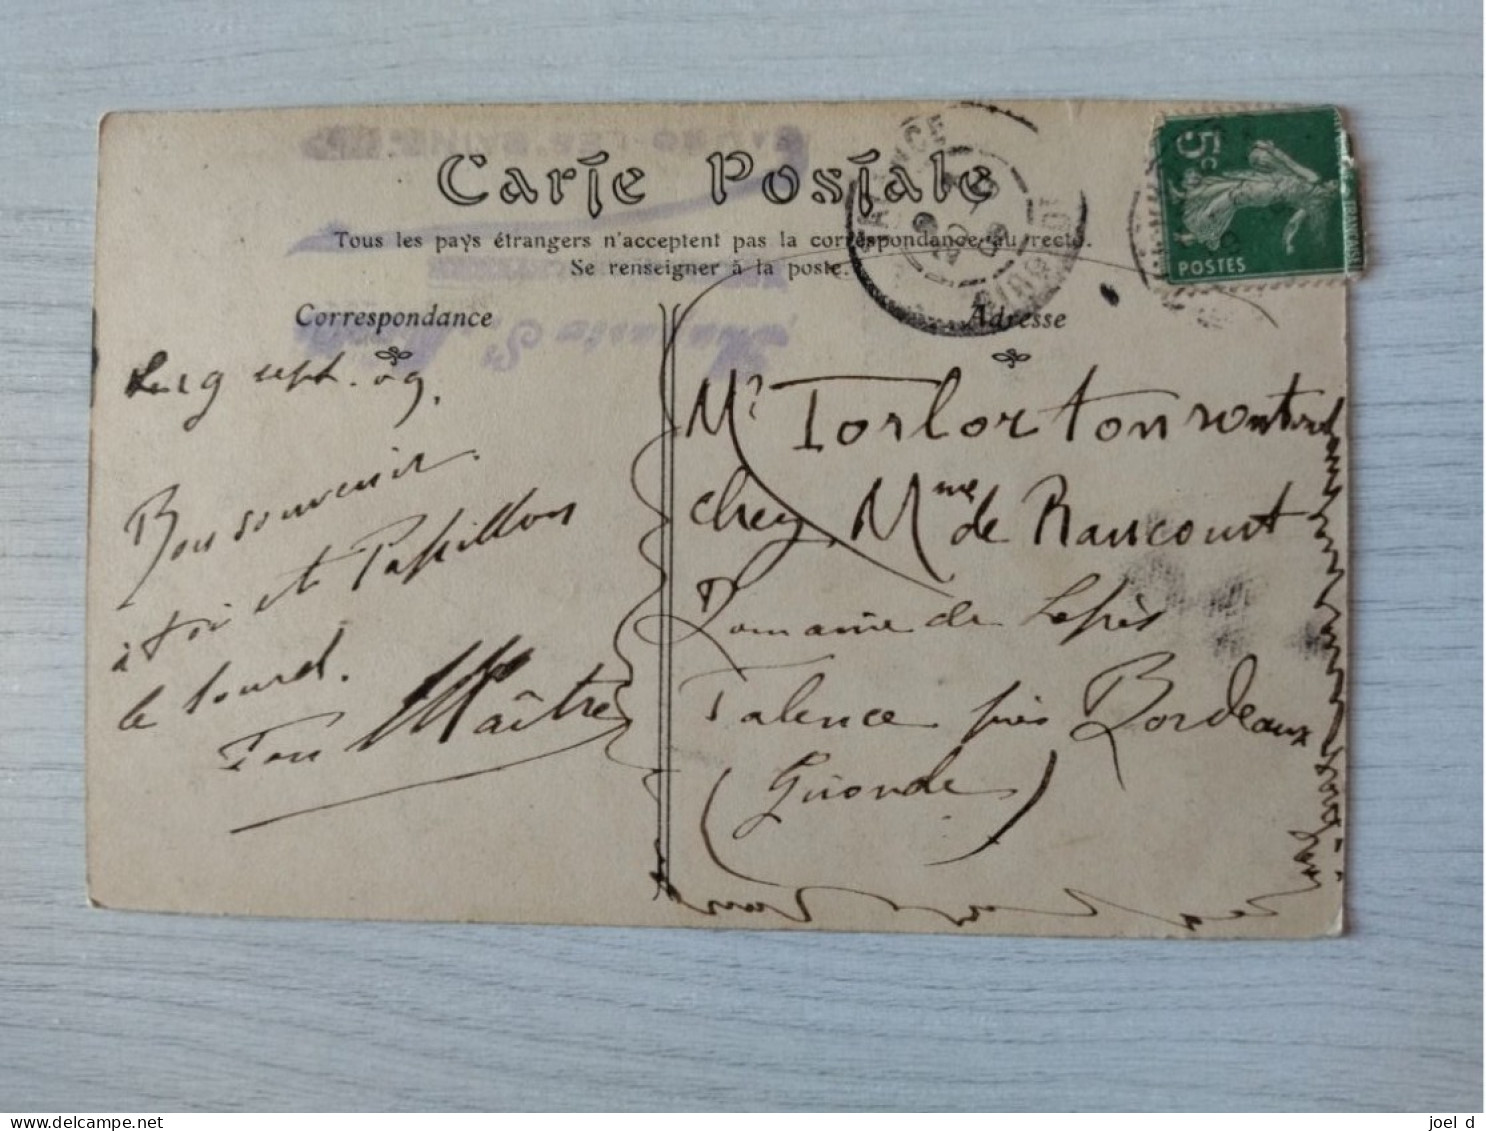 Carte Postale
Tous les pays étrangers n'acceptent pas la correspondance au recto.
Se renseigner à la poste.
Correspondance
Adresse
9 sept. 09.
Bon souvenir
à toi et Papillon
le lourd.
Ton Maître
Mr Torlorton
chez Mme de Rancourt
Domaine de
Talence près Bordeaux
(Gironde)
TALENCE
GIRONDE
5c
POSTES
joel d